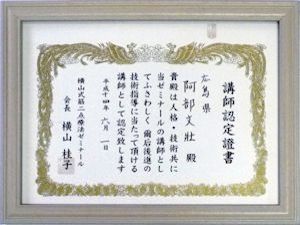 講師認定證書
広島県
阿部文壯 殿
貴殿は人格・技術共に
当ゼミナールの講師とし
てふさわしく 爾后後進の
技術指導に当たって頂ける
講師として認定致します
平成十四年 六月 一日
横山式筋二点療法ゼミナール
会長 横山 桂子